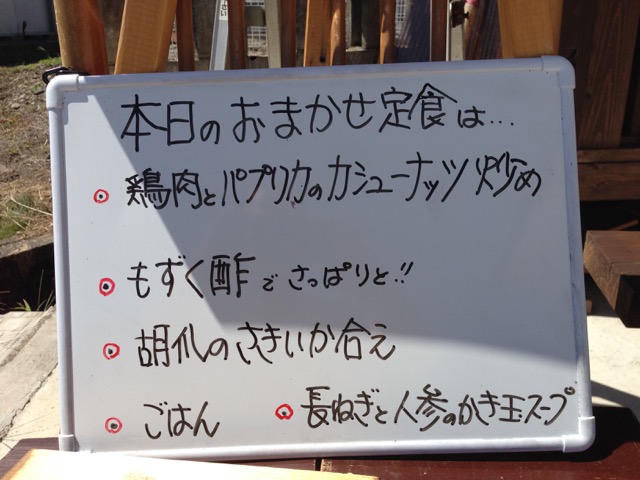 本日のおまかせ定食は...
鶏肉とパプリカのカシューナッツ炒め
もずく酢でさっぱりと!!
胡瓜のさきいか合え
ごはん
長ねぎと人参のかき玉スープ